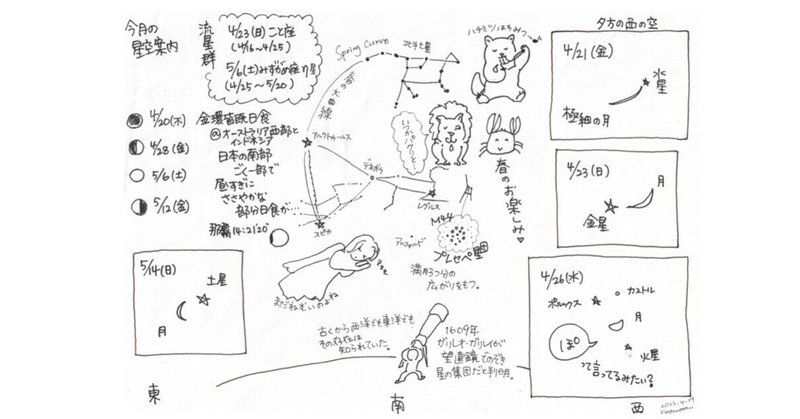 今月の
星空案内
流星群
4/23(日)こと座
(4/16~4/25)
5/6(土)みずがめ座η星
(4/25~5/20)
4/20(木) 金環皆既日食
@オーストラリア西部と
インドネシア
日本の南部
ごく一部で
昼すぎに
ささやかな
部分日食が…
那覇14:21 20%
4/28(金)
5/6(土)
5/12(金)
Spring Curve
北斗七星
春の大曲線
アルクトゥールス
デネボラ
レグルス
スピカ
アルファルド
ハチミツはちみつ~♪
春のお楽しみ♡
M44
プレセペ星団
満月3つ分の
広がりをもつ。
まだねむいのよね
古くから西洋でも東洋でも
その存在は
知られていた。
1609年
ガリレオ・ガリレイが
望遠鏡でのぞき
星の集団だと判明。
夕方の西の空
4/21(金)
水星
極細の月
4/23(日)
月
金星
4/26(水)
ポルックス
カストル
月
火星
「ぽ」
って言ってるみたい?
5/14(日)
土星
月
東
南
西